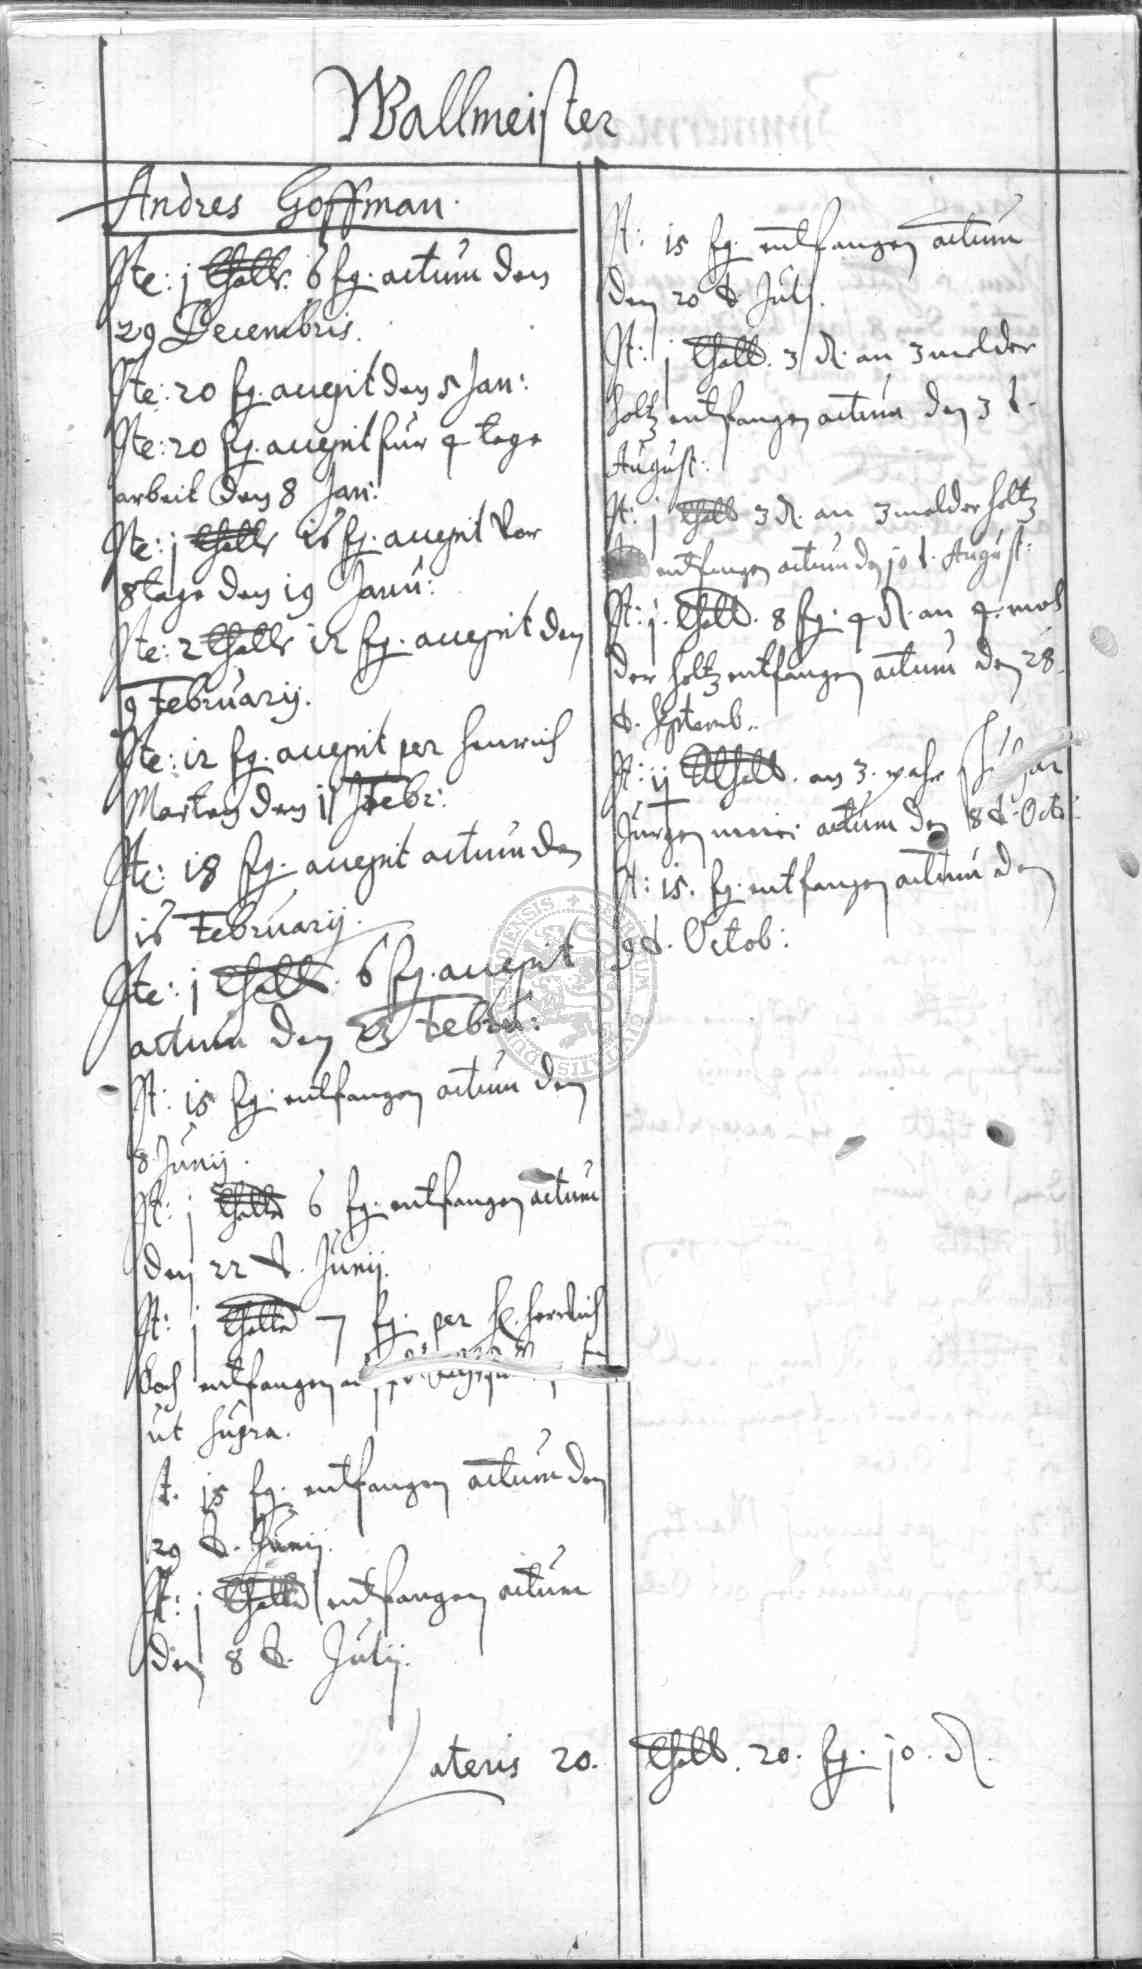 Wallmeister
Andres Goffman.
Ite: j thall: 6 fg. actum den
29 Decembris.
Ite: 20 fg. accepit den 5 Jan:
Ite: 20 fg. accepit für 4 tage
arbeit den 8 Jan:
Ite: j thall 16 fg. accepit vor
8 tage den 19 Janu:
Ite: 2 thall 12 fg. accepit den
9 February.
Ite: 12 fg. accepit per Henrich
Marten den 11 Febr:
Ite: 18 fg. accepit actum den
16 February.
Ite: j thall. 6 fg. accepit
actum den 23 Febru:
It: 15 fg. entfangen actum den
8 Junij.
It: j thall 6 fg. entfangen actum
den 22 d. Junij.
It: j thall 7 fg. per H.
entfangen
ut supra.
It. 15 fg. entfangen actum den
29 d. Junij.
It: j thall entfangen actum
den 8 d. Julij.
It: 15 fg. entfangen actum
den 20 d Julij.
It: j thall. 3 d. an 3 molder
holtz entfangen actum den 3 d.
August:
It: j thall 3 d. an 3 molder holtz
entfangen actum den 10 d. August:
It: j. thall. 8 fg. 4 d. an 4. mol
der holtz entfangen actum den 28.
d. Septemb.
It: ij thall. an 3.
Jürgen actum den 8 d. Octo:
It: 15. fg. entfangen actum den
9 d. Octob:
Lateris 20. thall. 20. fg. jo. d.